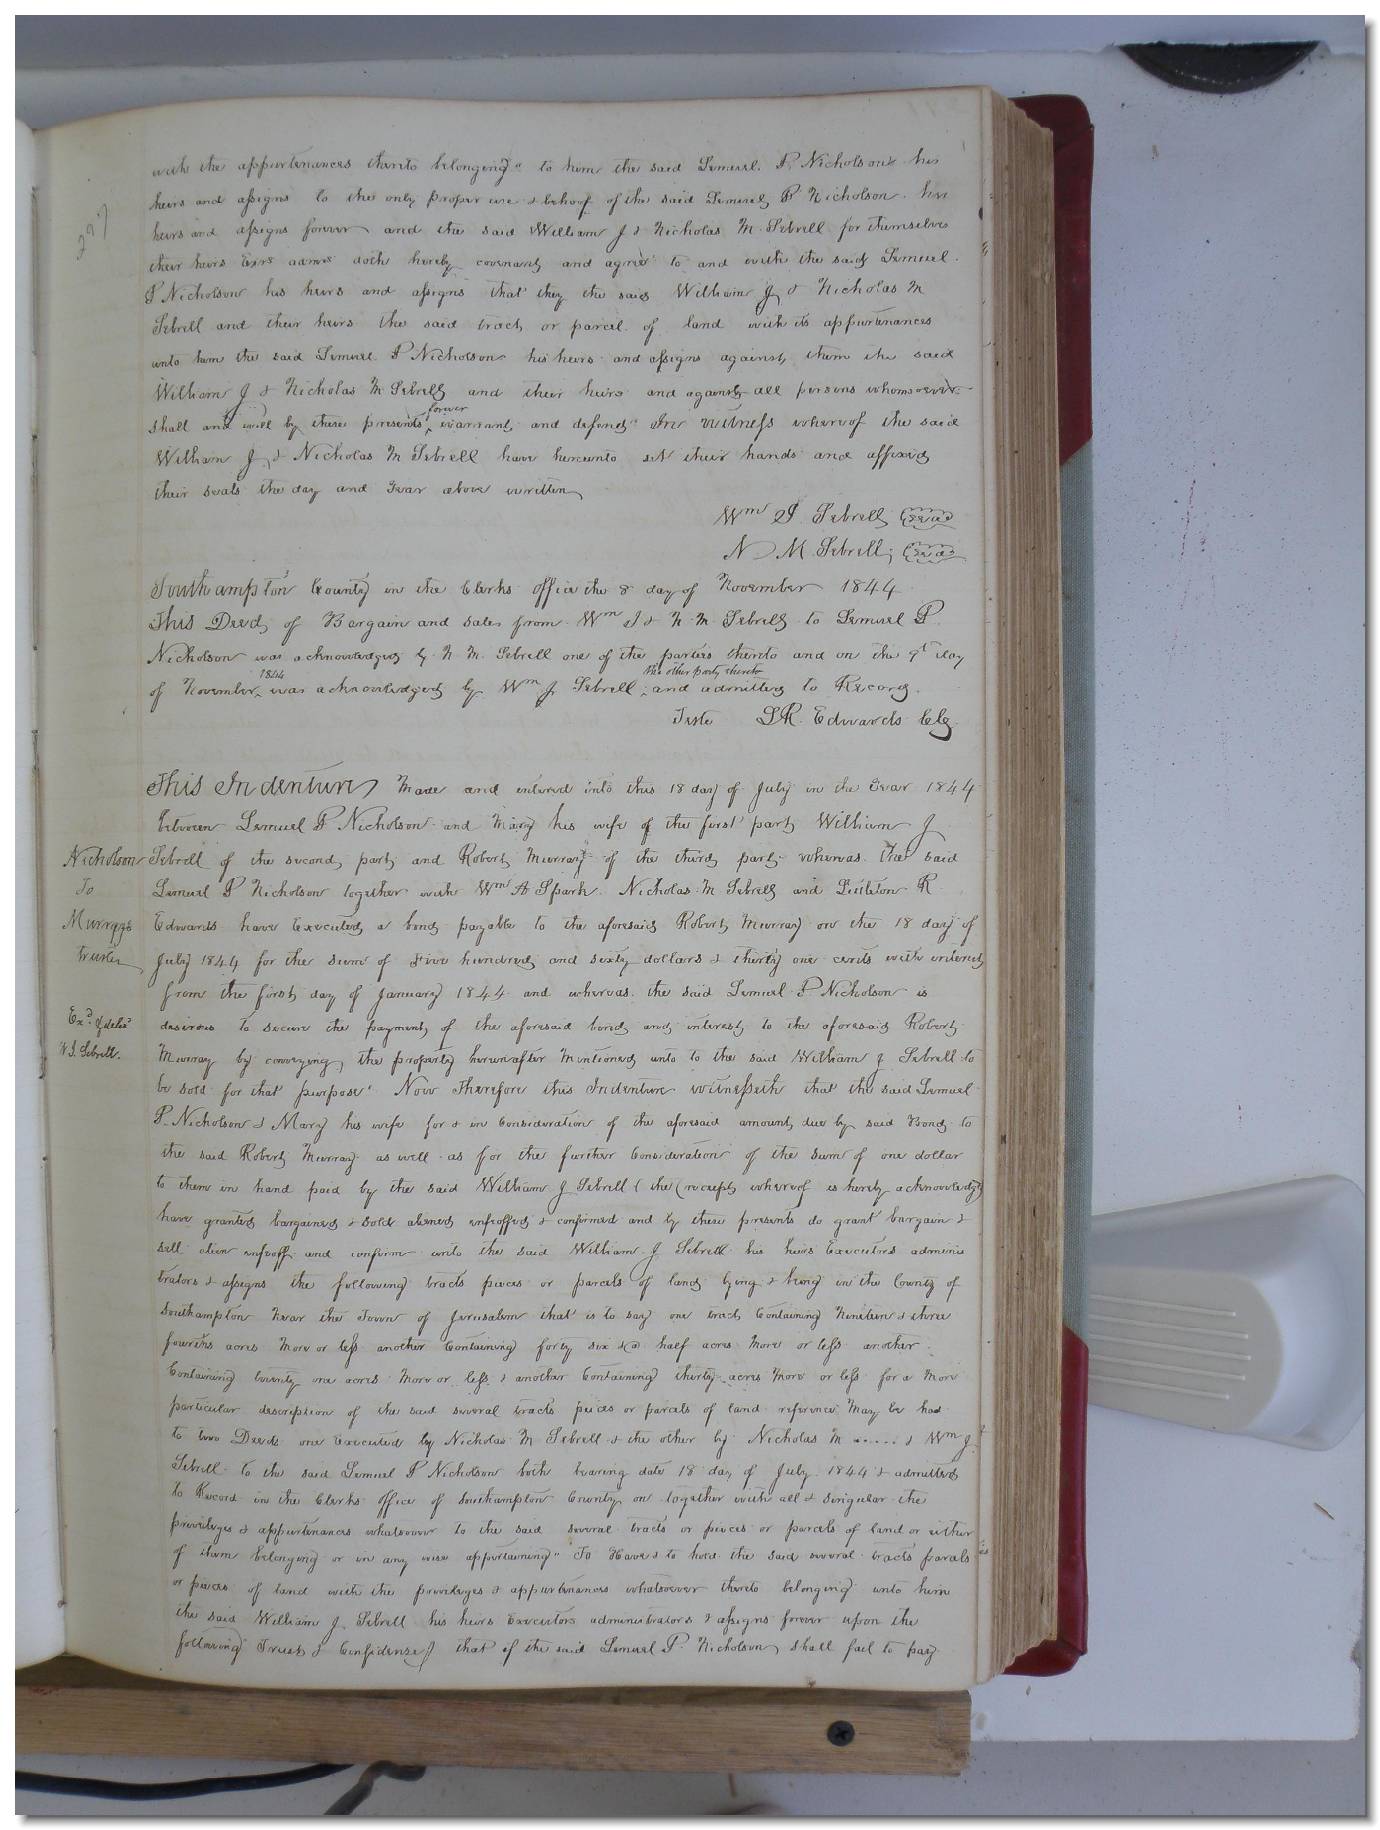 with the appurtenances thereto belonging" to him the said Lemuel P Nicholson his
heirs and assigns to the only proper use & behoof of the said Lemuel P Nicholson his
227
heirs and assigns forever and the said William J & Nicholas M Sebrell for themselves
their heirs Exrs admrs doth hereby covenant and agree to and with the said Lemuel
P Nicholson his heirs and assigns that they the said William J & Nicholas M
Sebrell and their heirs the said tract or parcel of land with its appurtenances
unto him the said Lemuel P Nicholson his heirs and assigns against them the said
William J & Nicholas M Sebrell and their heirs and against all persons whomsoever
shall and will by these presents forever warrant and defend" In witness whereof the said
William J & Nicholas M Sebrell have hereunto set their hands and affixed
their seals the day and Year above written
Wm J. Sebrell Seal
N M. Sebrell Seal
Southampton County in the Clerks office the 8 day of November 1844
This Deed of Bargain and sale from Wm J & N. M. Sebrell to Lemuel P.
Nicholson was acknowledged by N. M. Sebrell one of the parties thereto and on the 9th day
of November 1844 was acknowledged by Wm J. Sebrell the other party thereto and admitted to Record.
Teste L R. Edwards Clk
This Indenture Made and entered into this 18 day of July in the Year 1844
between Lemuel P Nicholson and Mary his wife of the first part William J
Nicholson
To
Murrays
trustee
Sebrell of the second part and Robert Murray of the third part whereas the said
Lemuel P Nicholson together with Wm A Spark Nicholas M Sebrell and Littleton R
Edwards have Executed a bond payable to the aforesaid Robert Murray on the 18 day of
July 1844 for the sum of five hundred and sixty dollars & thirty one cents with interest
from the first day of January 1844 and whereas the said Lemuel P Nicholson is
Exd. & delid
W. J. Sebrell.
desirous to secure the payment of the aforesaid bond and interest to the aforesaid Robert
Murray by conveying the property hereinafter Mentioned unto to the said William J Sebrell to
be sold for that purpose" Now Therefore this Indenture witnesseth that the said Lemuel
P. Nicholson & Mary his wife for & in Consideration of the aforesaid amount due by said Bond to
the said Robert Murray as well as for the further Consideration of the sum of one dollar
to them in hand paid by the said William J Sebrell (the receipt whereof is hereby acknowledged)
have granted bargained & sold aliened enfeoffed & confirmed and by these presents do grant bargain &
sell alien enfeoff and confirm unto the said William J Sebrell his heirs Executors adminis
trators & assigns the following tracts pieces or parcels of land lying & being in the County of
Southampton Near the Town of Jerusalem that is to say one tract Containing Nineteen & three
fourths acres More or less another Containing forty six & a half acres More or less another
Containing twenty one acres More or less & another Containing thirty acres More or less for a More
particular description of the said several tracts peices or parcels of land reference May be had
to two Deeds one Executed by Nicholas M Sebrell & the other by Nicholas M ..... & Wm J
Sebrell to the said Lemuel P Nicholson both bearing date 18 day of July 1844 & admitted
to Record in the Clerks office of Southampton County on together with all & singular the
priviledges & appurtenances whatsoever to the said several tracts or pieces or parcels of land or either
of them belonging or in any wise appertaining" To Have & to hold the said several tracts parcels
or pieces of land with the priviledges & appurtenances whatsoever thereto belonging unto him
the said William J. Sebrell his heirs Executors administrators & assigns forever upon the
following Trust & Confidence) that if the said Lemuel P. Nicholson shall fail to pay